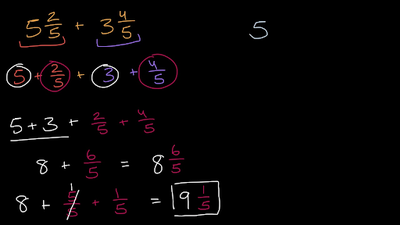 5 2/5 + 3 4/5
5 + 2/5 + 3 + 4/5
5 + 3 + 2/5 + 4/5
8 + 6/5 = 8 6/5
8 + 5/5 1 + 1/5 = 9 1/5
5